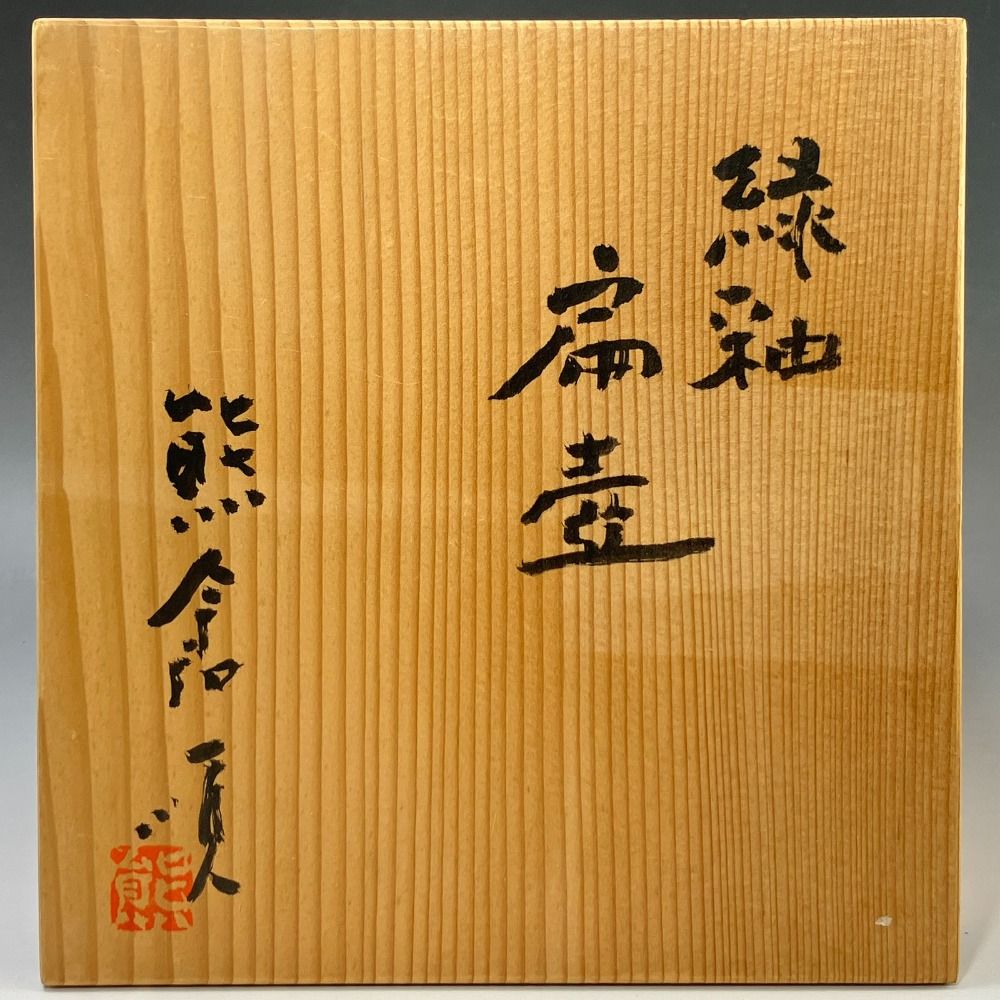 緑釉
扁壺
熊倉順
熊